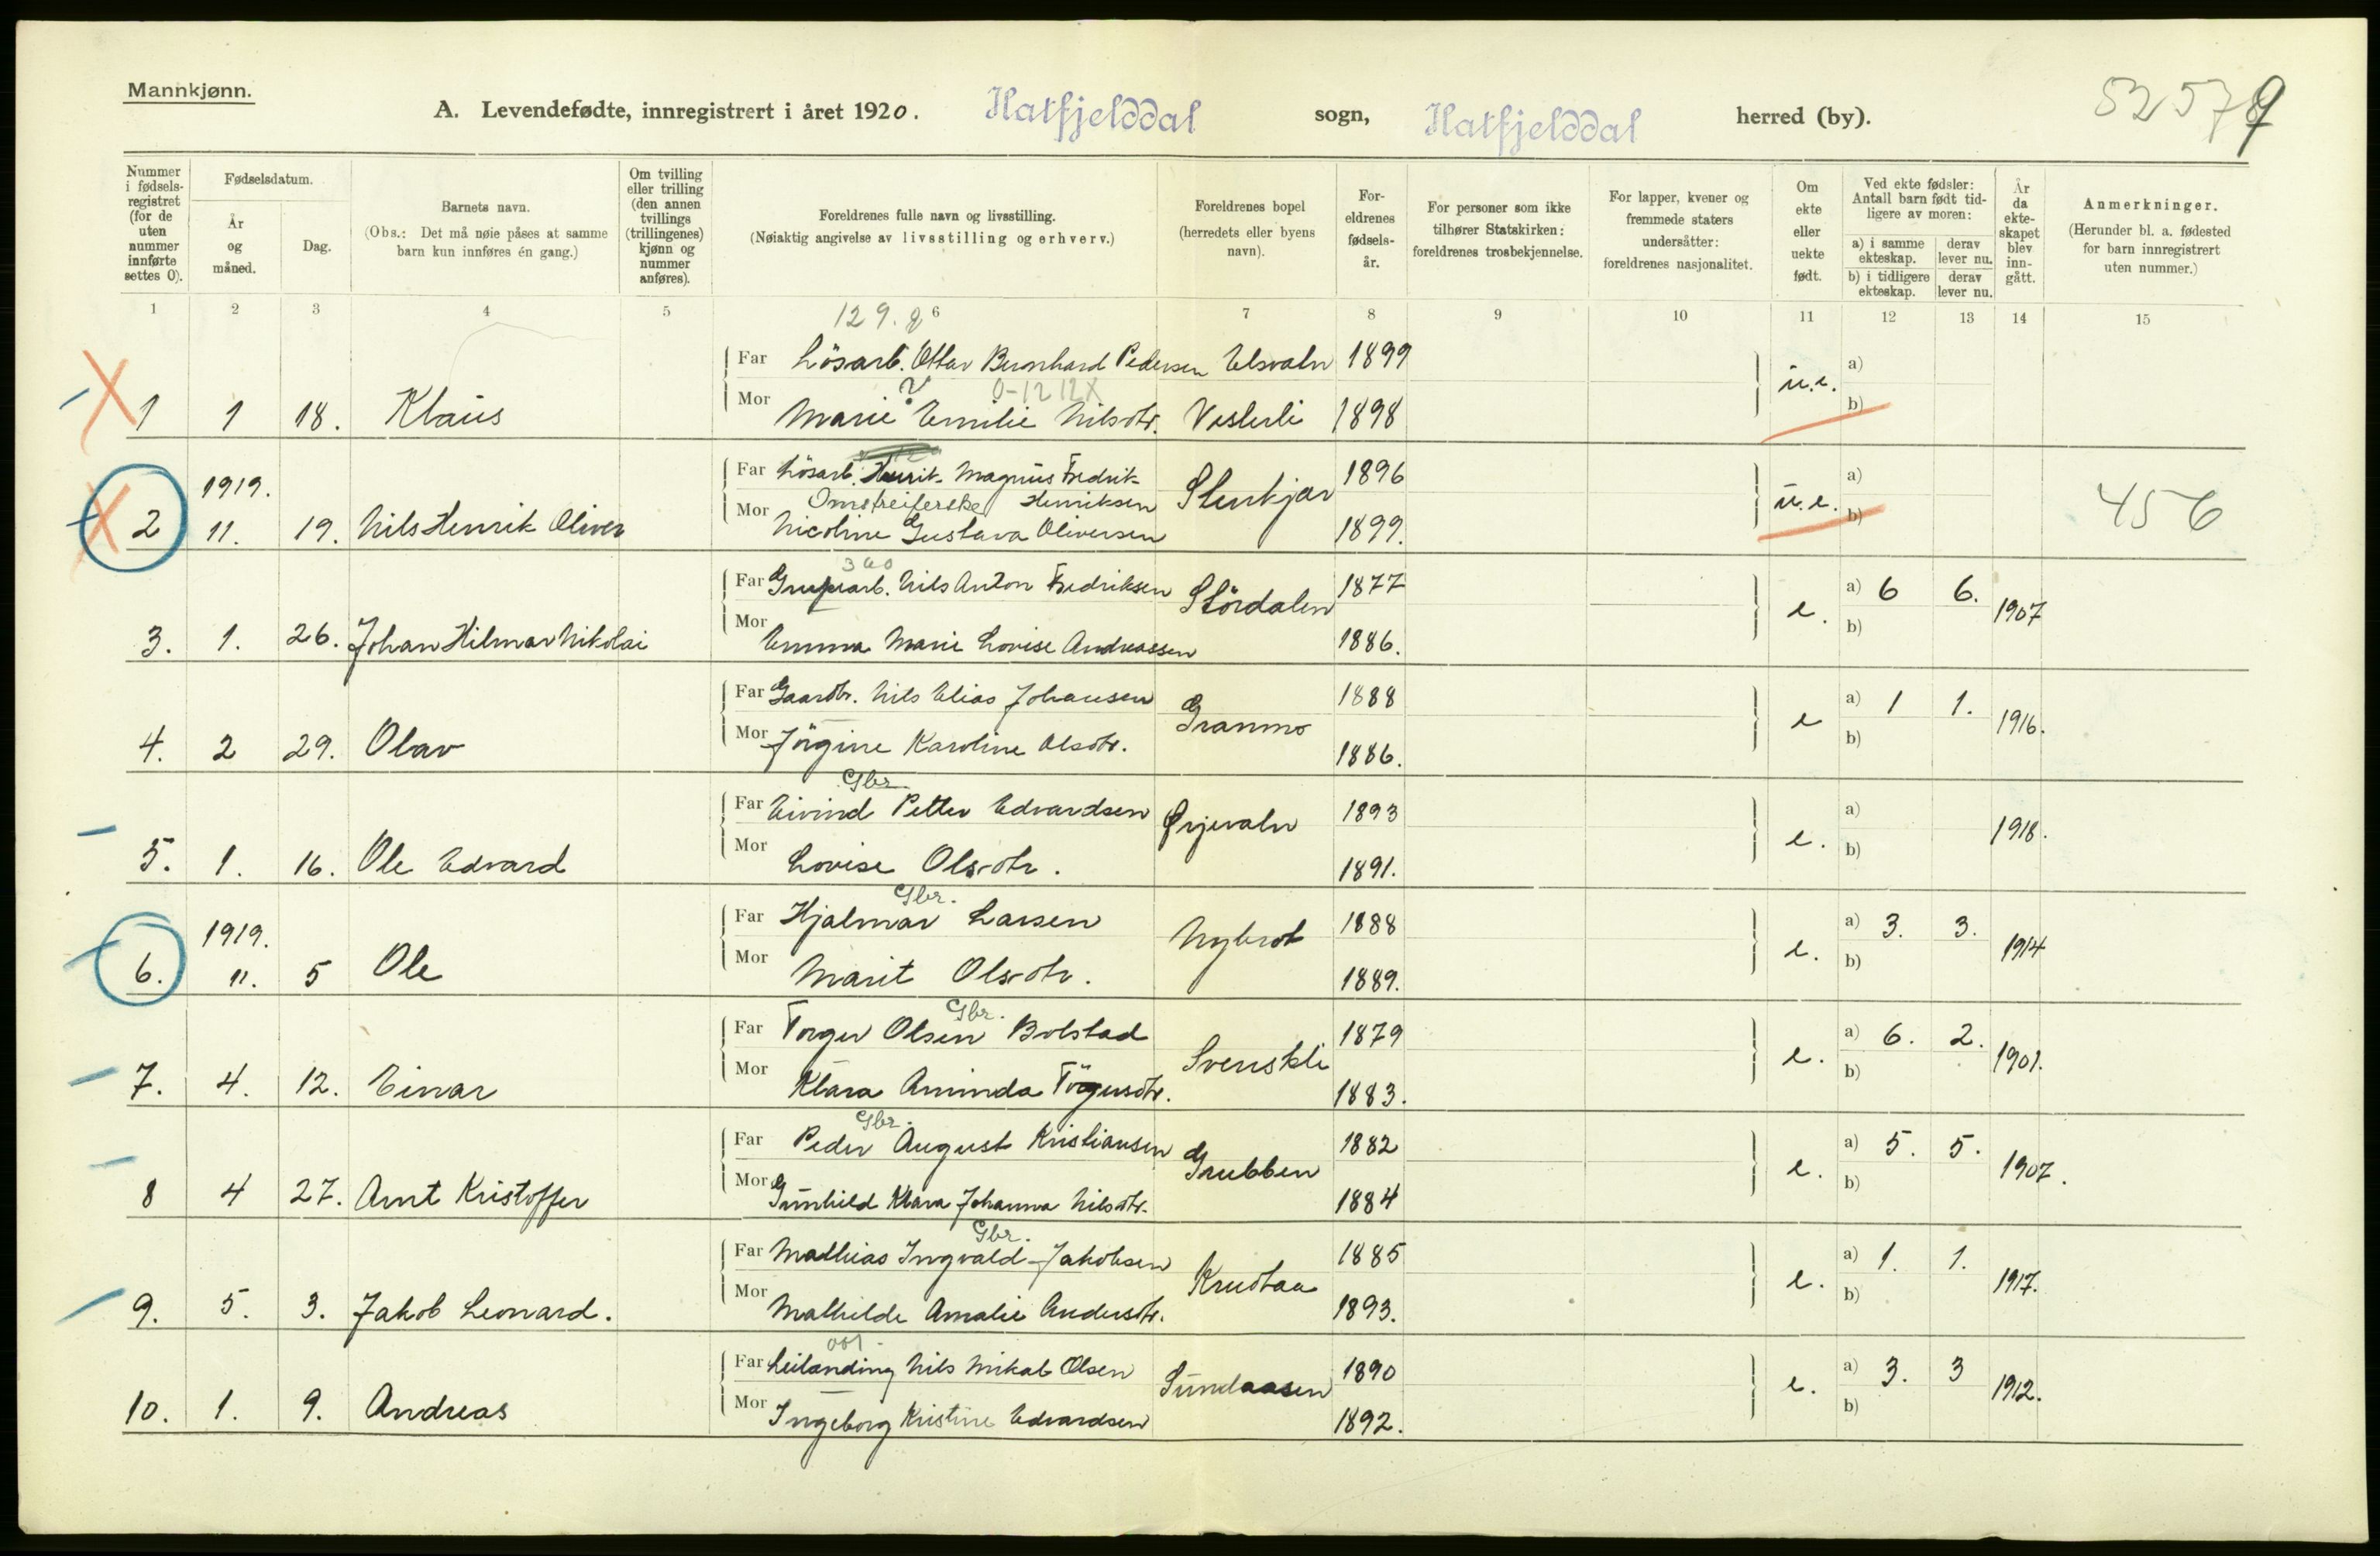 Mannkjønn.
A. Levendefødte, innregistrert i året 1920. Hatfjelddal sogn, Hatfjelddal herred (by).
Nummer i fødsels-registret (for de uten nummer innførte settes 0).
Fødselsdatum.
År og måned.
Dag.
Barnets navn.
(Obs.: Det må nøie påses at samme barn kun innføres én gang.)
Om tvilling eller trilling (den annen tvillings (trillingenes) kjønn og nummer anføres).
Foreldrenes fulle navn og livsstilling.
(Nøiaktig angivelse av livsstilling og erhverv.)
Foreldrenes bopel (herredets eller byens navn).
For-eldrenes fødsels-år.
For personer som ikke tilhører Statskirken: foreldrenes trosbekjennelse.
For lapper, kvener og fremmede staters undersåtter: foreldrenes nasjonalitet.
Om ekte eller uekte født.
Ved ekte fødsler: Antall barn født tid-ligere av moren:
a) i samme ekteskap. derav lever nu.
b) i tidligere ekteskap. derav lever nu.
År da ekte-skapet blev inn-gått.
Anmerkninger.
(Herunder bl. a. fødested for barn innregistrert uten nummer.)
1 2 3 4 5 6 7 8 9 10 11 12 13 14 15
129.8
Far Lösarb. Ottar Bernhard Pedersen Elsvatn 1899 a)
0-12 12X
1 1 18. Klaus Mor Marie Emilie Nilsdtr. Vesterli 1898 u.e. b)
Far Lösarb. Henrik Magnus Fredrik Henriksen Stenkjær 1896 a)
1919.
Omstreiferske
2 11. 19. Nils Henrik Oliver Mor Nicoline Gustava Oliversen 1899. u.e. b) 456
360
Far Grubearb. Nils Anton Fredriksen Stördalen 1877 a) 6 6.
3. 1. 26. Johan Hilmar Nikolai Mor Emma Marie Lovise Andreassen 1886. e. b) 1907
Far Gaardbr. Nils Elias Johansen Granmo 1888 a) 1 1.
4. 2 29. Olav Mor Jörgine Karoline Olsdtr. 1886. e b) 1916.
Gbr.
Far Eivind Petter Edvardsen Ørjevatn 1893 a)
5. 1. 16. Ole Edvard Mor Lovise Olsdtr. 1891. e. b) 1918.
Gbr.
Far Hjalmar Larsen Nybrot 1888 a) 3. 3.
1919.
6. 11. 5 Ole Mor Marit Olsdtr. 1889. e. b) 1914
Gbr.
Far Torger Olsen Bolstad Svenskli 1879 a) 6. 2.
7. 4. 12. Einar Mor Klara Aminda Törgersdtr. 1883. e. b) 1901.
Gbr.
Far Peder August Kristiansen Grubben 1882 a) 5. 5.
8 4 27. Arnt Kristoffer Mor Gunhild Klara Johanna Nilsdtr. 1884 e. b) 1907.
Gbr.
Far Mathias Ingvald Jakobsen Krudtaa 1885 a) 1. 1.
9. 5. 3. Jakob Leonard. Mor Mathilde Amalie Andersdtr. 1893. e. b) 1917.
001
Far Leilending Nils Mikal Olsen Sundaasen 1890 a) 3. 3
10. 1. 9. Andreas Mor Ingeborg Kristine Edvardsen 1892. e. b) 1912.